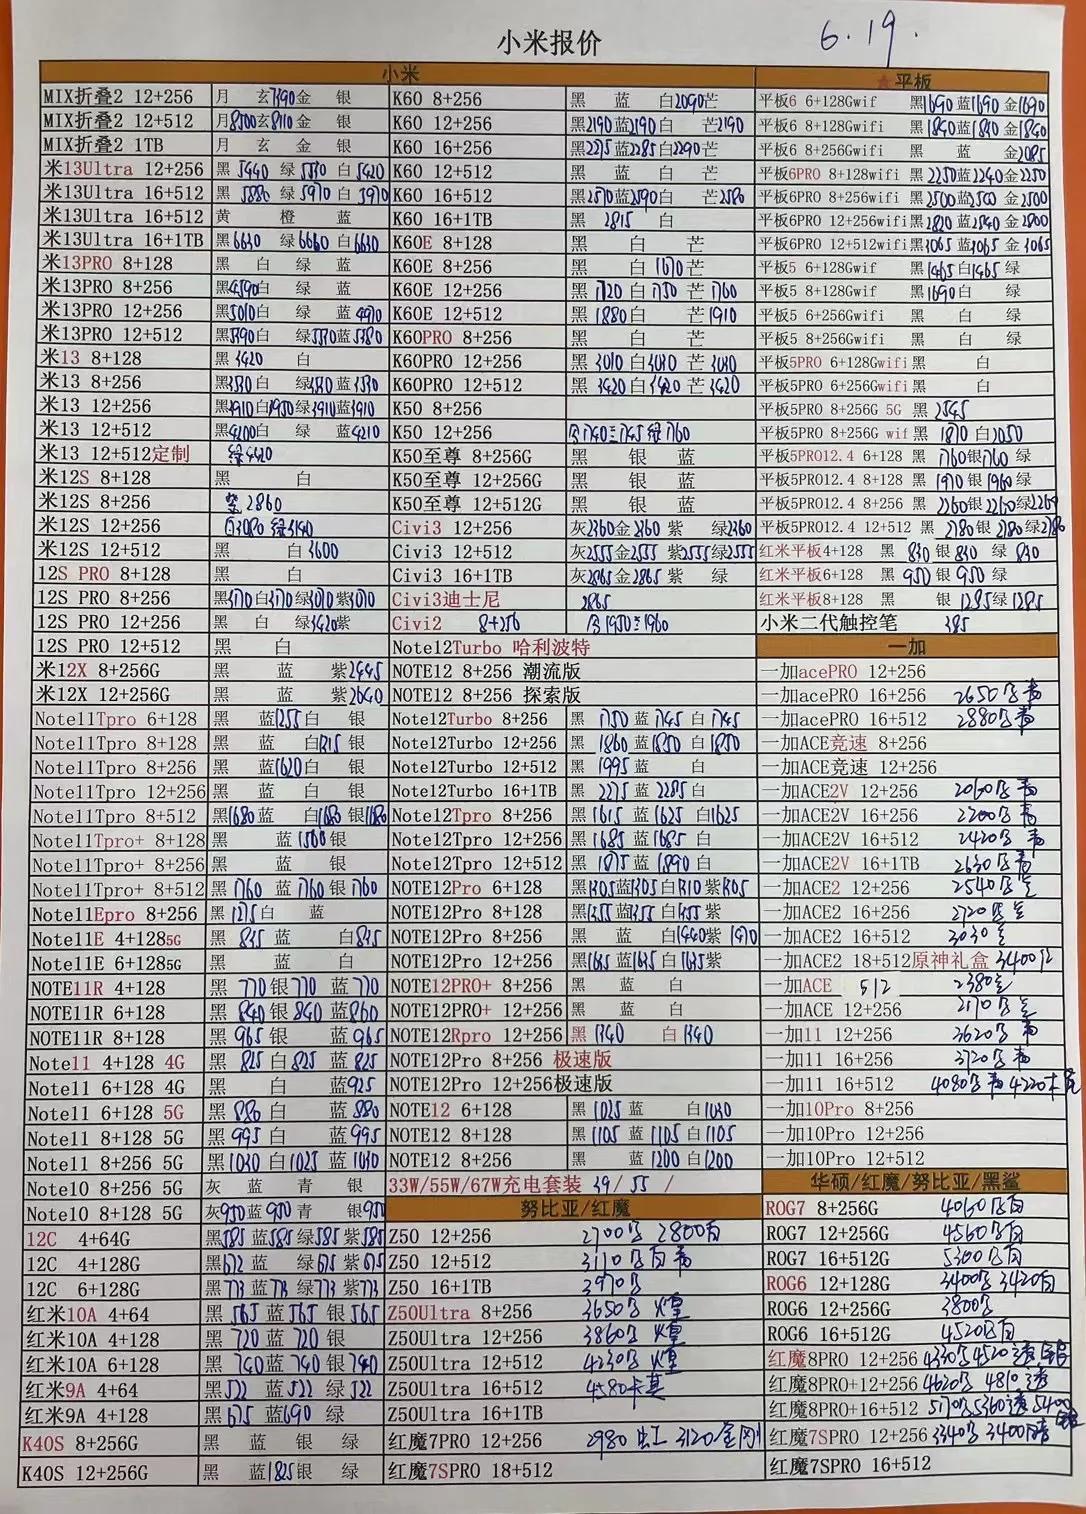 小米报价
6.19.
小米
MIX折叠2 12+256 月 玄7390金 银
MIX折叠2 12+512 月8500玄8110金 银
MIX折叠2 1TB 月 玄 金 银
米13Ultra 12+256 黑 5440 绿 白 5420
米13Ultra 16+512 黑 5880 绿 5970 白
米13Ultra 16+512 黄 橙 蓝
米13Ultra 16+1TB 黑6630 绿6660 白6630
米13PRO 8+128 黑 白 绿 蓝
米13PRO 8+256 黑4590白 绿 蓝
米13PRO 12+256 黑5010白 绿 蓝4970
米13PRO 12+512 黑5390白 绿 蓝5380
米13 8+128 黑3420 白
米13 8+256 黑 白 绿 蓝
米13 12+256 黑3910白 绿3910蓝3910
米13 12+512 黑4200白 绿 蓝4210
米13 12+512定制 绿4420
米12S 8+128 黑 白
米12S 8+256 2860
米12S 12+256 白3080 绿3140
米12S 12+512 黑 白3600
12S PRO 8+128 黑 白
12S PRO 8+256 黑 白 绿 紫
12S PRO 12+256 黑 白 绿3420紫
12S PRO 12+512 黑 白
米12X 8+256G 黑 蓝 紫2445
米12X 12+256G 黑 蓝 紫2640
Note11Tpro 6+128 黑 蓝1255白 银
Note11Tpro 8+128 黑 蓝 白 银
Note11Tpro 8+256 黑 蓝1620白 银
Note11Tpro 12+256 黑 蓝 白 银
Note11Tpro 8+512 黑1680蓝 白1680银1680
Note11Tpro+ 8+128 黑 蓝1560银
Note11Tpro+ 8+256 黑 蓝 银
Note11Tpro+ 8+512 黑1760 蓝1760银1760
Note11Epro 8+256 黑1275白 蓝
Note11E 4+1285G 黑 835 蓝 白835
Note11E 6+1285G 黑 蓝 白
NOTE11R 4+128 黑 770银770 蓝770
NOTE11R 6+128 黑 840银840 蓝860
NOTE11R 8+128 黑 965银 蓝965
Note11 4+128 4G 黑 825白825 蓝825
Note11 6+128 4G 黑 白 蓝925
Note11 6+128 5G 黑 880白 蓝880
Note11 8+128 5G 黑995白 蓝995
Note11 8+256 5G 黑1030白1025蓝1030
Note10 8+256 5G 灰 蓝 青 银
Note10 8+128 5G 灰950蓝950青 银950
12C 4+64G 黑585蓝585绿585紫585
12C 4+128G 黑672 蓝 绿675紫675
12C 6+128G 黑773蓝773绿773紫773
红米10A 4+64 黑565蓝565银565
红米10A 4+128 黑720蓝720银
红米10A 6+128 黑740蓝740银740
红米9A 4+64 黑522 蓝522 绿522
红米9A 4+128 黑675 蓝690 绿
K40S 8+256G 黑 蓝 银 绿
K40S 12+256G 黑 蓝1825银 绿
K60 8+256 黑 蓝 白2090芒
K60 12+256 黑2190蓝2190白 芒2190
K60 16+256 黑2275蓝2285白2290芒
K60 12+512 黑 蓝 白 芒
K60 16+512 黑2570蓝2590白 芒2580
K60 16+1TB 黑 2815 白
K60E 8+128 黑 白 芒
K60E 8+256 黑 白1670芒
K60E 12+256 黑1720白1750芒1760
K60E 12+512 黑1880白 芒1910
K60PRO 8+256 黑 白 芒
K60PRO 12+256 黑3010白 芒
K60PRO 12+512 黑3420白3420芒3420
K50 8+256
K50 12+256 1740 1745绿1760
K50至尊 8+256G 黑 银 蓝
K50至尊 12+256G 黑 银 蓝
K50至尊 12+512G 黑 银 蓝
Civi3 12+256 灰2360金2360 紫 绿2360
Civi3 12+512 灰2555金2555 紫2555绿2555
Civi3 16+1TB 灰2865金2865 紫 绿
Civi3迪士尼 2865
Civi2 8+256 1950 1960
Note12Turbo 哈利波特
NOTE12 8+256 潮流版
NOTE12 8+256 探索版
Note12Turbo 8+256 黑1750蓝1745白1745
Note12Turbo 12+256 黑1860蓝1850白1850
Note12Turbo 12+512 黑1995蓝 白
Note12Turbo 16+1TB 黑2275蓝2285白
Note12Tpro 8+256 黑1615蓝1625白1625
Note12Tpro 12+256 黑1685蓝1685白
Note12Tpro 12+512 黑1875蓝1890白
NOTE12Pro 6+128 黑1305蓝1305白1310紫1305
NOTE12Pro 8+128 黑1355蓝1355白1355紫
NOTE12Pro 8+256 黑 蓝 白1440紫1470
NOTE12Pro 12+256 黑1635蓝1635白1635紫
NOTE12PRO+ 8+256 黑 蓝 白
NOTE12PRO+ 12+256 黑 蓝 白
NOTE12Rpro 12+256 黑1340 白1340
NOTE12Pro 8+256 极速版
NOTE12Pro 12+256极速版
NOTE12 6+128 黑1025蓝 白1030
NOTE12 8+128 黑1105蓝1105白1105
NOTE12 8+256 黑 蓝1200白1200
33W/55W/67W充电套装 39/ 55 /
努比亚/红魔
Z50 12+256 2700 2800白
Z50 12+512 3110
Z50 16+1TB 3970
Z50Ultra 8+256 3650
Z50Ultra 12+256 3860
Z50Ultra 12+512 4230
Z50Ultra 16+512 4580卡其
Z50Ultra 16+1TB
红魔7PRO 12+256 2980 3120金刚
红魔7SPRO 18+512
★平板
平板6 6+128Gwif 黑1690蓝1690金1690
平板6 8+128Gwifi 黑1840蓝1840金1840
平板6 8+256Gwifi 黑 蓝 金2085
平板6PRO 8+128wifi 黑2250蓝2240金2250
平板6PRO 8+256wifi 黑2500蓝2500金2500
平板6PRO 12+256wifi 黑2820蓝2840金2800
平板6PRO 12+512wifi 黑3065蓝3065金3065
平板5 6+128Gwif 黑1465白1465绿
平板5 8+128Gwif 黑1690白 绿
平板5 6+256Gwifi 黑 白 绿
平板5 8+256Gwifi 黑 白 绿
平板5PRO 6+128Gwifi 黑 白
平板5PRO 6+256Gwifi 黑 白
平板5PRO 8+256G 5G 黑 2545
平板5PRO 8+256G wif 黑 1870 白2050
平板5PRO12.4 6+128 黑1760银1760绿
平板5PRO12.4 8+128 黑1970银1960绿
平板5PRO12.4 8+256 黑2260银2260绿2260
平板5PRO12.4 12+512 黑2780银2780绿2780
红米平板4+128 黑 830银830 绿 830
红米平板6+128 黑 950银950 绿
红米平板8+128 黑 银1285绿1285
小米二代触控笔 385
一加
一加acePRO 12+256
一加acePRO 16+256 2650
一加acePRO 16+512 2880
一加ACE竞速 8+256
一加ACE竞速 12+256
一加ACE2V 12+256 2060
一加ACE2V 16+256 2200
一加ACE2V 16+512 2420
一加ACE2V 16+1TB 2630
一加ACE2 12+256 2540
一加ACE2 16+256 2720
一加ACE2 16+512 3030
一加ACE2 18+512原神礼盒 3400
一加ACE 512 2380
一加ACE 12+256
一加11 12+256 3620
一加11 16+256 3720
一加11 16+512 4080 4220
一加10Pro 8+256
一加10Pro 12+256
一加10Pro 12+512
华硕/红魔/努比亚/黑鲨
ROG7 8+256G 4060
ROG7 12+256G 4560
ROG7 16+512G 5300
ROG6 12+128G 3400 3420白
ROG6 12+256G 3800
ROG6 16+512G 4520
红魔8PRO 12+256 4330 4520透
红魔8PRO+12+256 4620 4810透
红魔8PRO+16+512 5170 5360透 5400
红魔7SPRO 12+256 3340 3400
红魔7SPRO 16+512